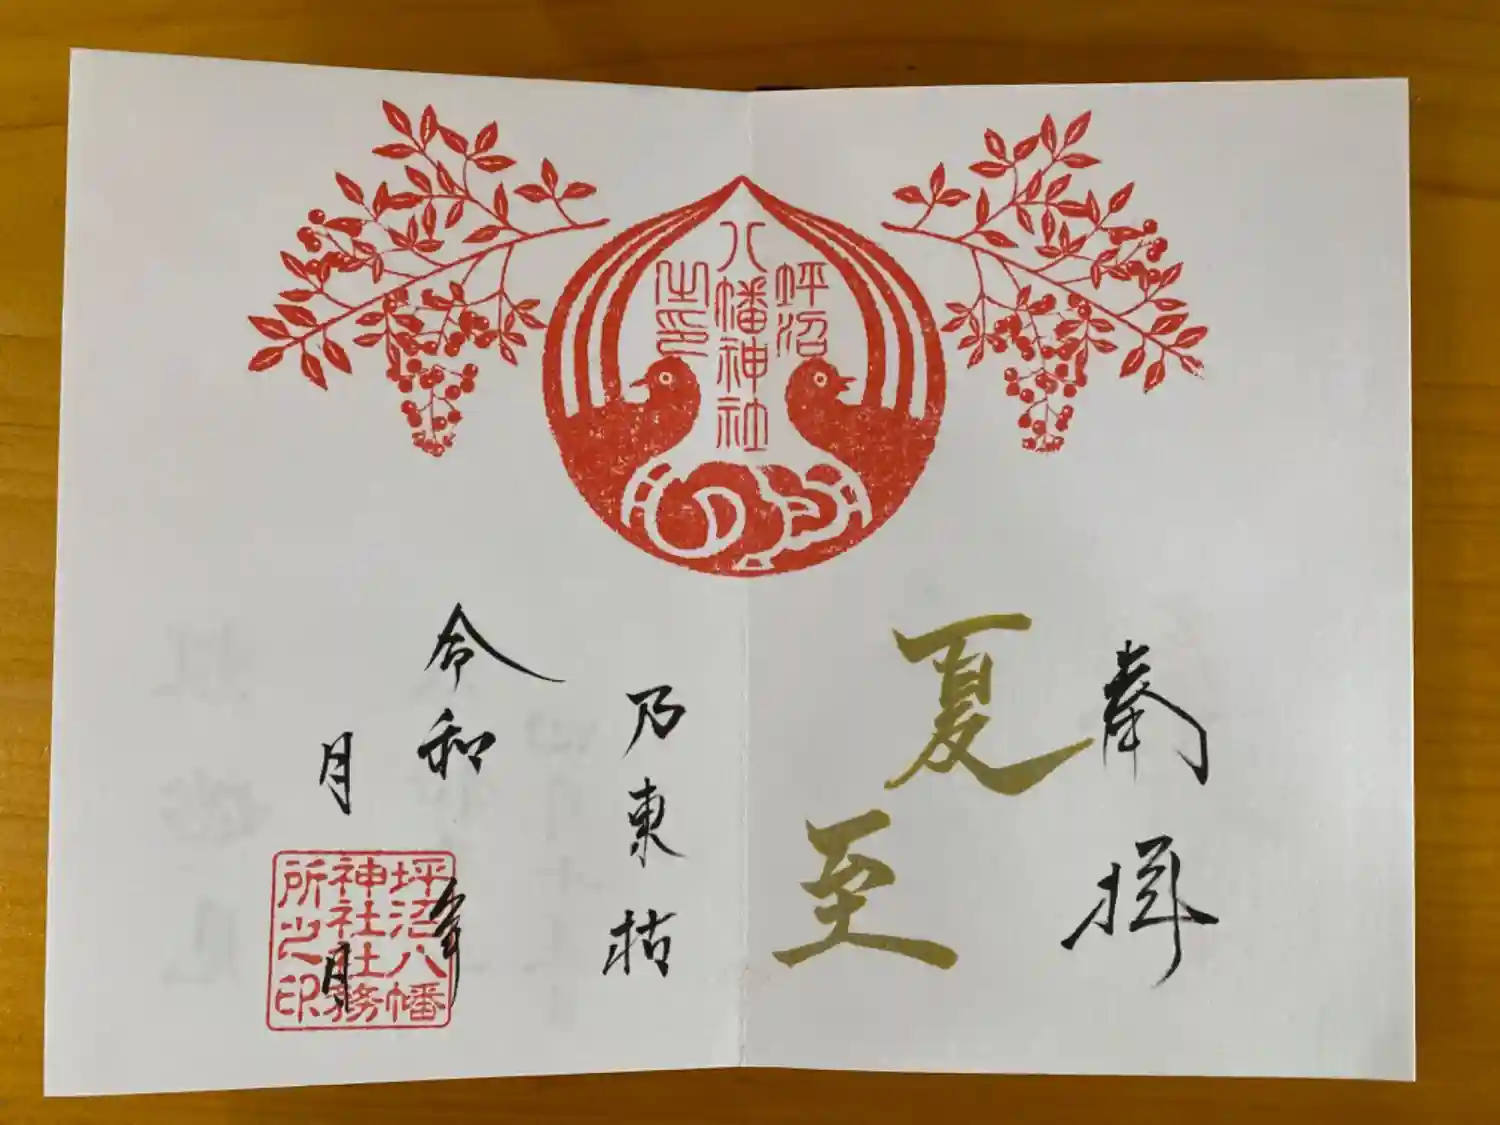 坪沼
八幡神社
之印
奉拝
夏至
乃東枯
令和 年
月 月
坪沼八幡
神社社務
所之印